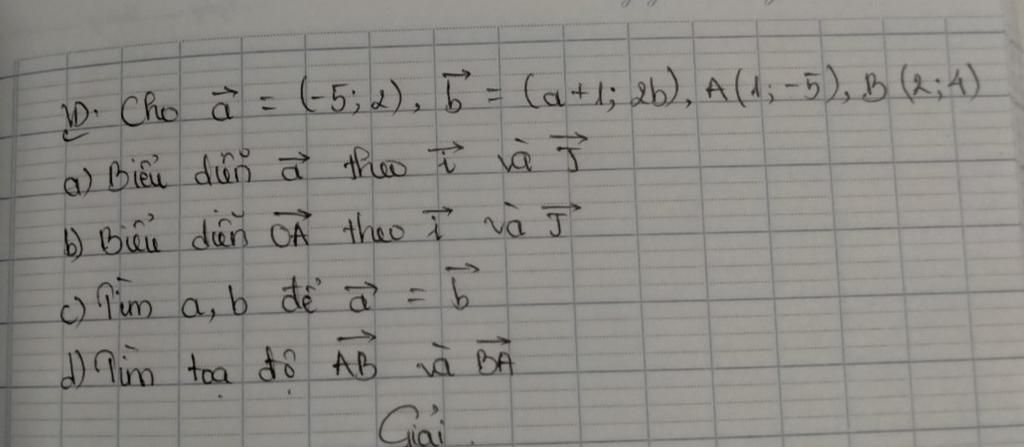 VD. Cho a⃗ = (-5; 2), b⃗ = (a+1; 2b), A(1; -5), B(2; 4)
a) Biểu diễn a⃗ theo i⃗ và J⃗
b) Biểu diễn OA⃗ theo i⃗ và J⃗
c) Tìm a, b để a⃗ = b⃗
d) Tìm toạ độ AB⃗ và BA⃗
Giải